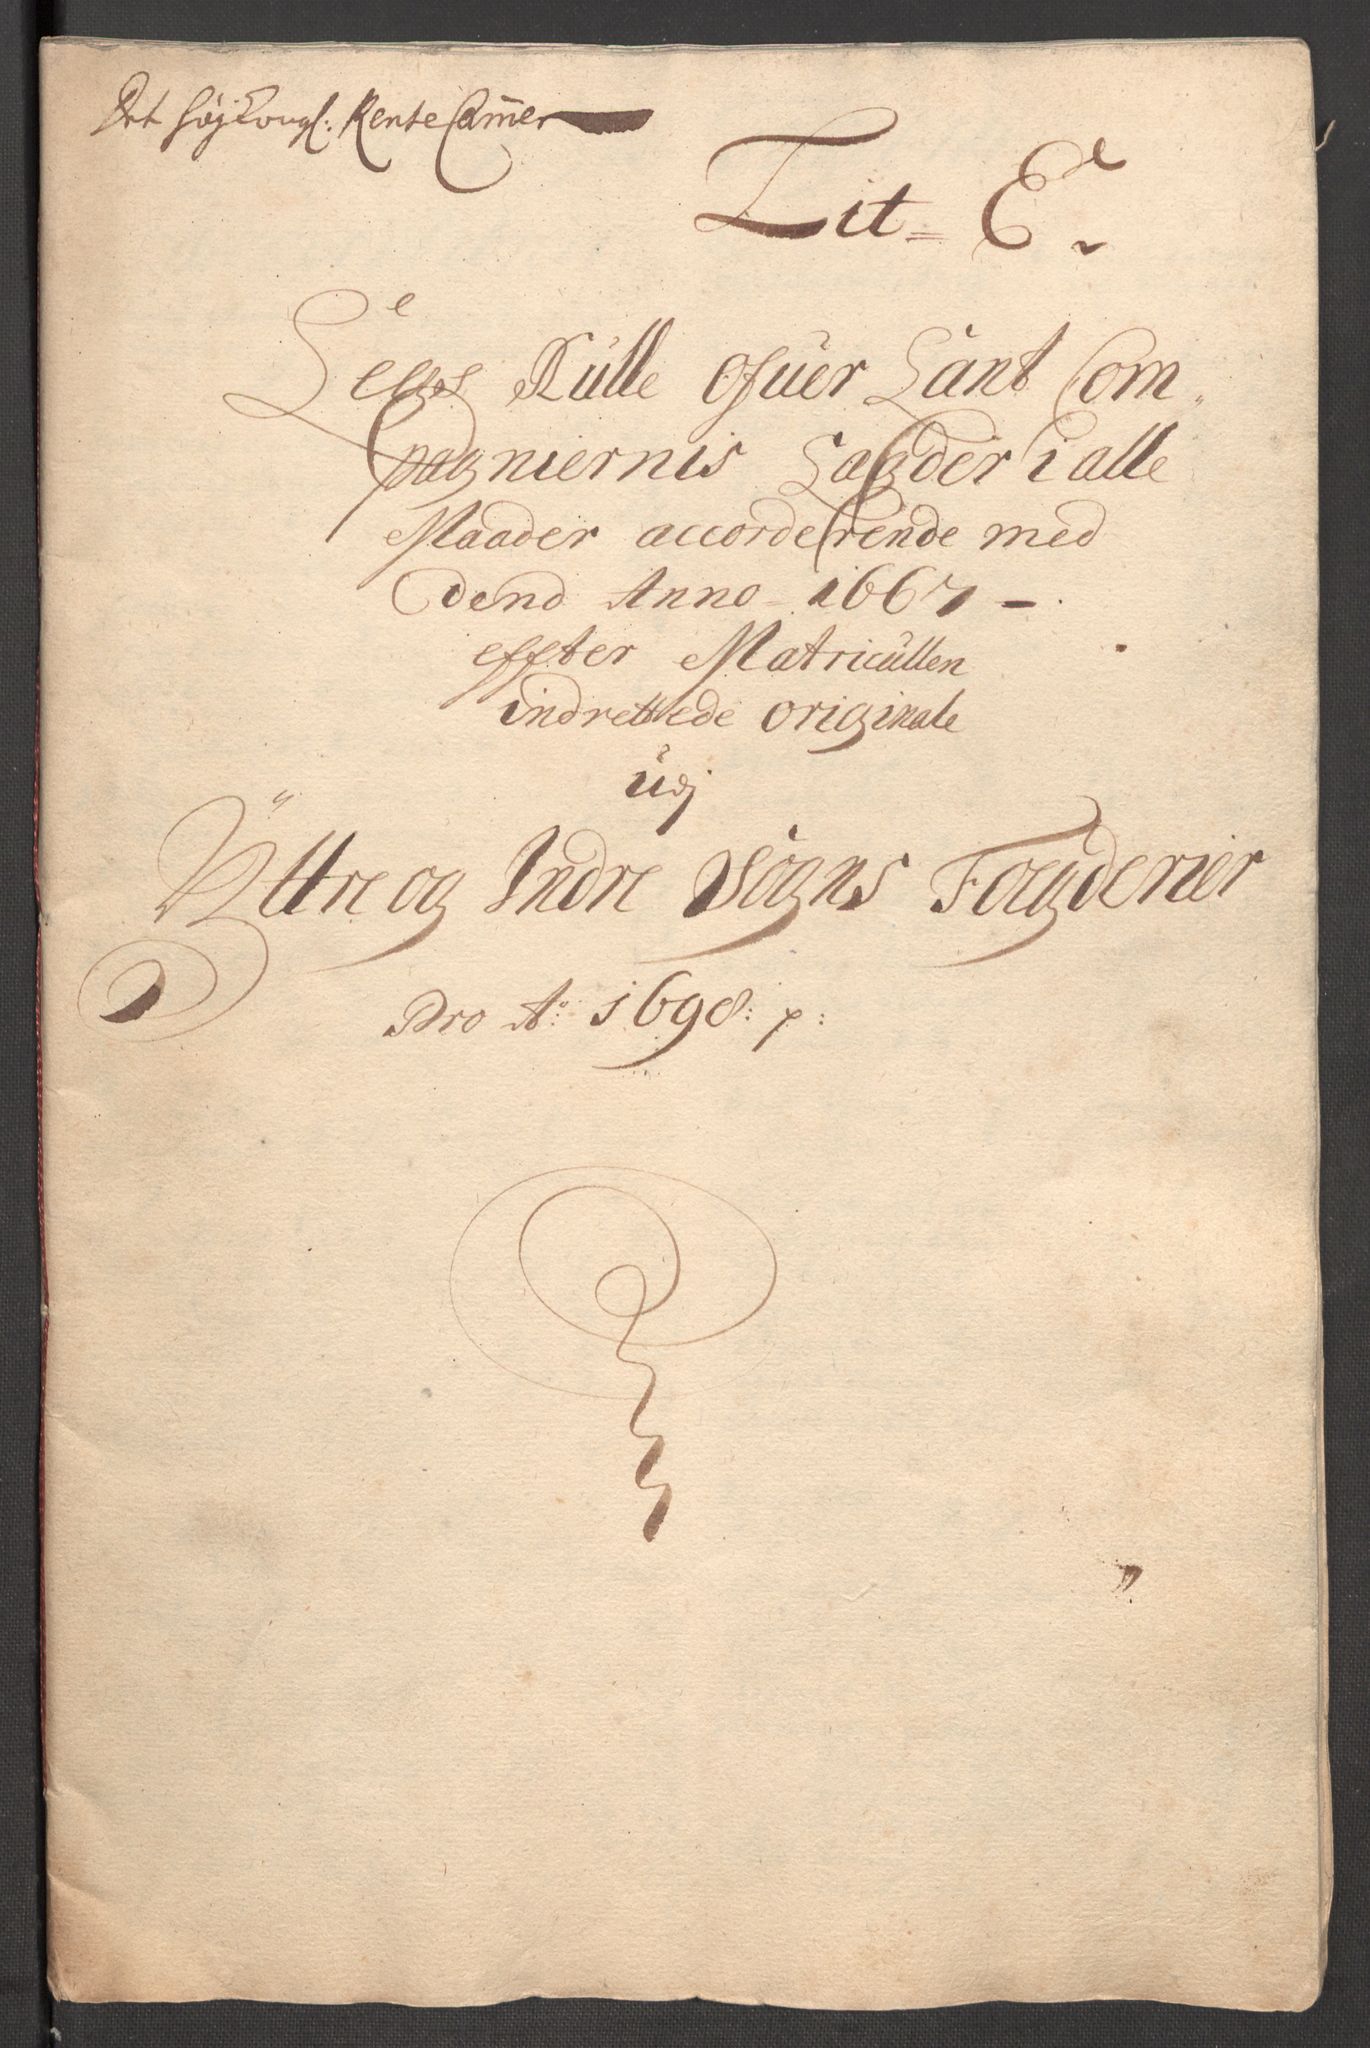 Det høj Kongl: Rente Camer
Lit= E.
Legs Rulle ofuer Lant Com„
pagniernis Lagder i alle
Maader accorderende med
dend Anno 1667 –
effter Matricullen
indrettede originale
udj
Yttre og Indre Sogns Foegderier
Pro Ao: 1698: p: